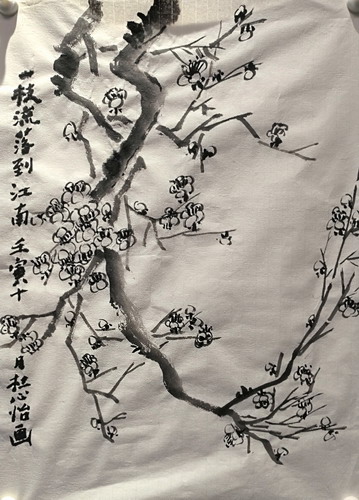 一枝流落到江南壬寅十一月杜心怡画